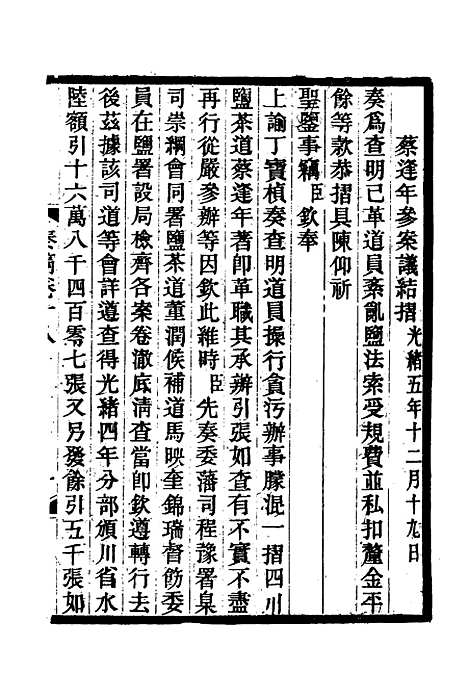 蔡逢年參案議結摺光緒五年十二月十九日
奏爲查明已革道員紊亂鹽法索受規費並私扣釐金平
餘等款恭摺具陳仰祈
聖鑒事竊臣欽奉
上諭丁寶楨奏查明道員操行貪污辦事朦混一摺四川
鹽茶道蔡逢年著卽革職其承辦引張如查有不實不盡
再行從嚴參辦等因欽此維時臣先奏委藩司程豫署臬
司崇綱會同署鹽茶道董潤候補道馬映奎錦瑞督飭委
員在鹽署設局檢齊各案卷澈底淸查當卽欽遵轉行去
後茲據該司道等會詳遵查得光緒四年分部頒川省水
陸額引十六萬八千四百零七張又另發餘引五千張如